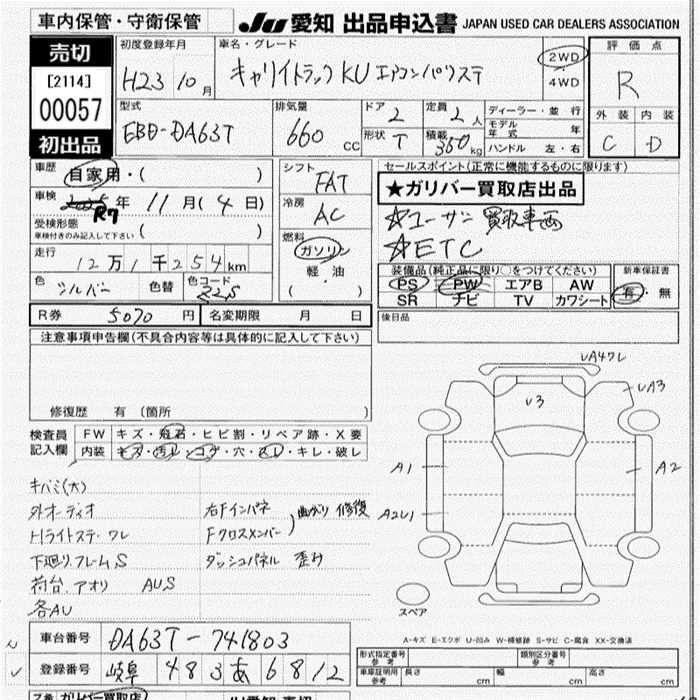 車内保管・守衛保管
JU 愛知 出品申込書 JAPAN USED CAR DEALERS ASSOCIATION
売切
[2114]
00057
初出品
初度登録年月
H23 10月
車名・グレード
キャリイトラック KU エアコンパワステ
2WD
4WD
評価点
R
外装 内装
C D
型式
EBD-DA63T
排気量
660 CC
ドア 2
形状 T
定員 2人
積載 350kg
ディーラー・並行
モデル年式 年
ハンドル 左・右
車歴
自家用・( )
車検
R7年 11月(4日)
受検形態
車検付きのみ記入して下さい ( )
走行
12万1千254km
色 シルバー 色替 色コード Z2S
シフト
FAT
冷房
AC
燃料
ガソリン
軽油
( ・ )
セールスポイント(正常に機能するものに限ります)
★ガリバー買取店出品
☆ユーザー買取車両
☆ETC
装備品(純正品に限り○をつけてください)
PS PW エアB AW
SR ナビ TV カワシート
新車保証書
有・無
R券 5070円 名変期限 月 日
後日品
注意事項申告欄(不具合内容等は具体的に記入して下さい)
修復歴 有 (箇所 )
検査員記入欄
FW キズ・飛石・ヒビ割・リペア跡・X要
内装 キズ・汚れ・コゲ・穴・スレ・キレ・破レ
キバミ(大)
外オーディオ
Hライトステ. ワレ
下廻り. フレームS
荷台. アオリ AU,S
各AU
右Fインパネ
Fクロスメンバー
曲がり 修復
ダッシュパネル 歪み
UA4ワレ
U3
UA3
A1
A2
A2U1
スペア
A-キズ E-エクボ U-凹み W-補修跡 S-サビ C-腐食 XX-交換済
車台番号 DA63T-741803
登録番号 岐阜 483 あ 6812
形式指定番号 参考
類別区分番号 参考
車庫証明用 参考 長さ cm 幅 cm 高さ cm
ガリバー買取店
JU愛知 売切